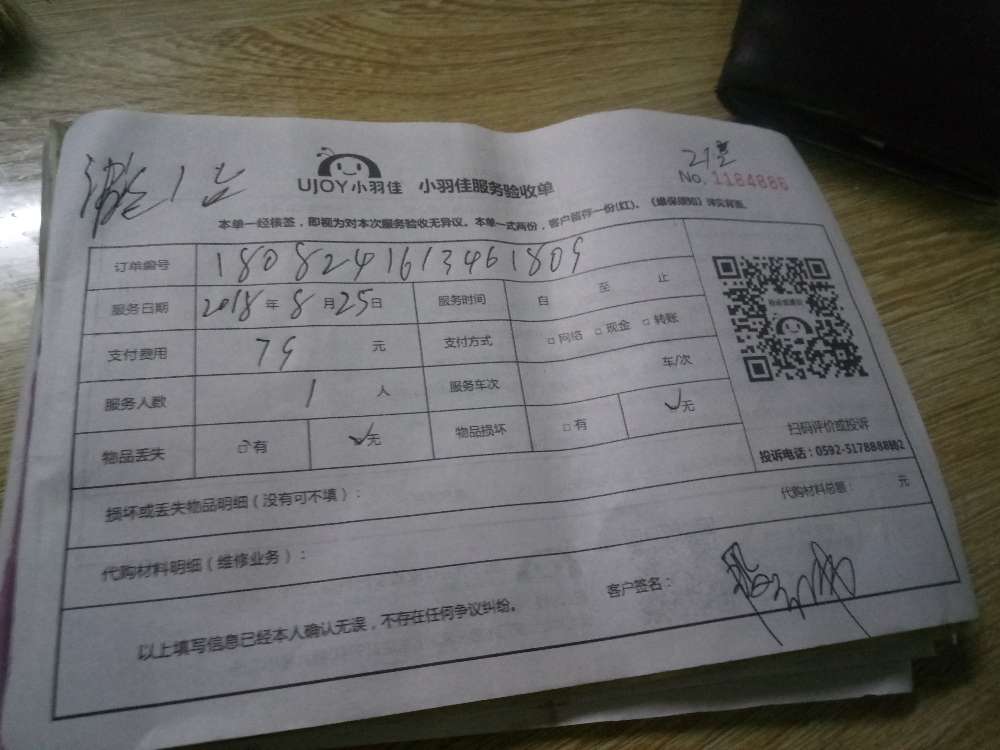 UJOY小羽佳 小羽佳服务验收单
No. 1184886
本单一经核签，即视为对本次服务验收无异议。本单一式两份，客户留存一份(红)。《维保须知》详见背面。
订单编号 1808241613461809
服务日期 2018年8月25日 服务时间 自 至 止
支付费用 79 元 支付方式 □网络 □现金 □转账
服务人数 1 人 服务车次 车/次
物品丢失 □有 ✓无 物品损坏 □有 ✓无
扫码评价或投诉
投诉电话：0592-5178888转2
损坏或丢失物品明细（没有可不填）：
代购材料明细（维修业务）： 代购材料总额： 元
以上填写信息已经本人确认无误，不存在任何争议纠纷。 客户签名：